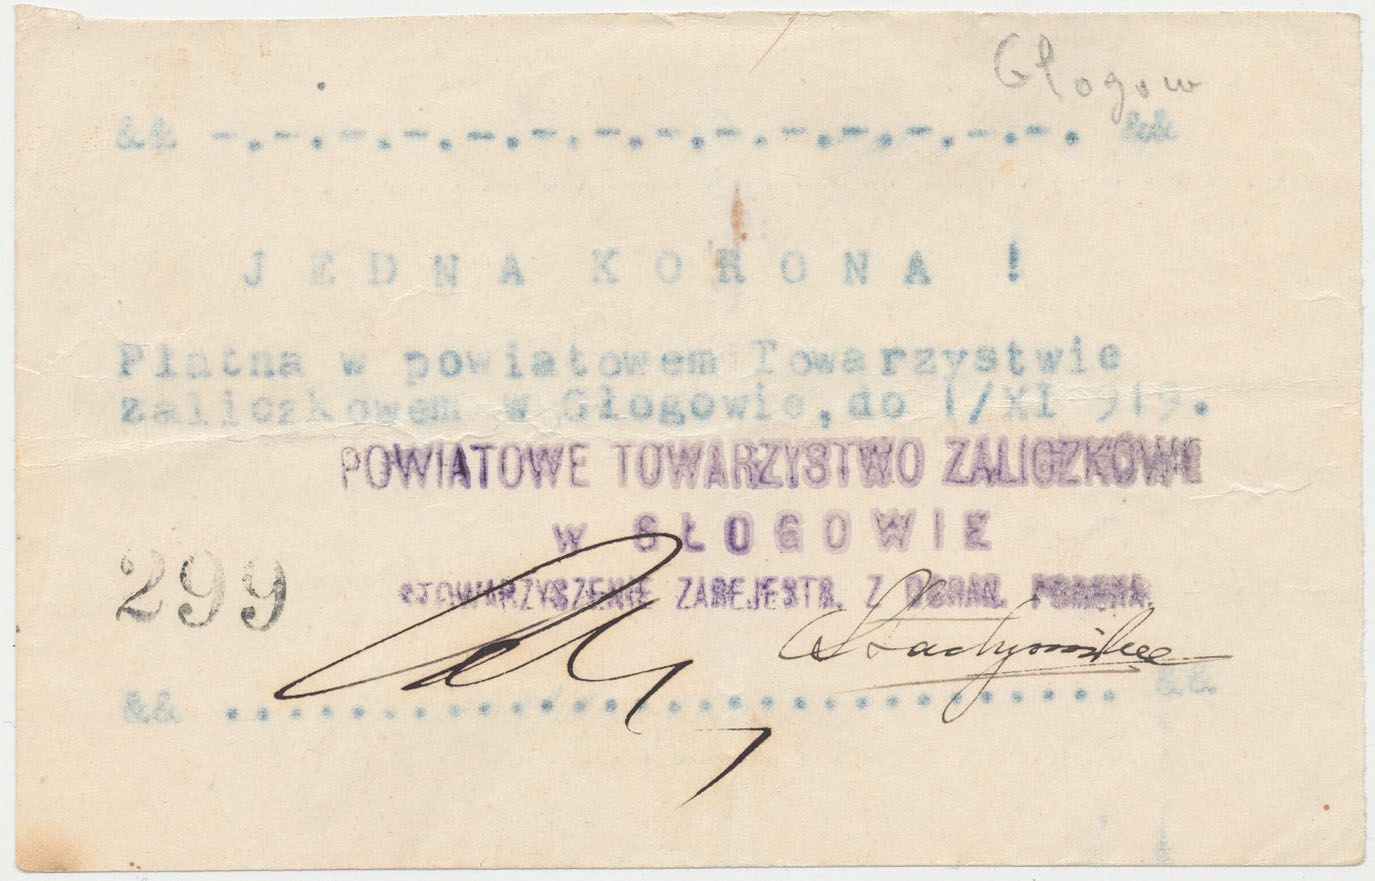 Głogow
&& -.-.-.-.-.-.-.-.-.-.-.-.-.-. &&
JEDNA KORONA !
Płatna w powiatowem Towarzystwie
zaliczkowem w Głogowie, do 1/XI 919.
POWIATOWE TOWARZYSTWO ZALICZKOWE
w GŁOGOWIE
STOWARZYSZENIE ZAREJESTR. Z OGRAN. PORĘKĄ.
299
&& ............................. &&